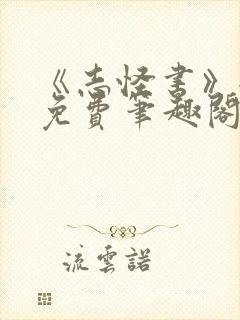 《志怪书》
免費筆趣閣
流雲諾